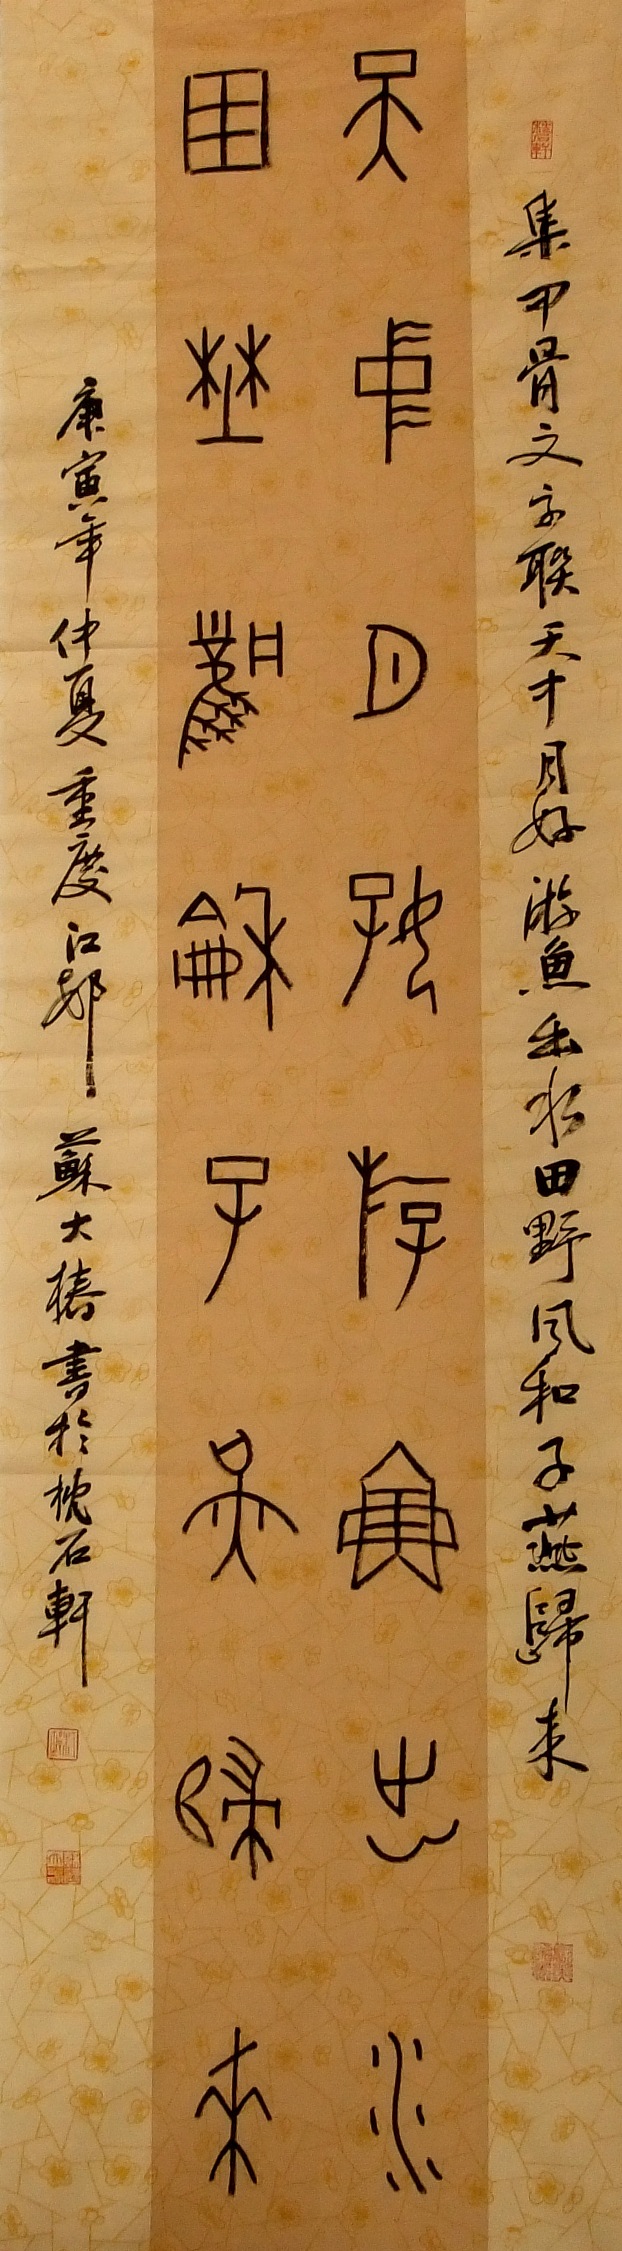 集甲骨文字聯天中月好游魚出水田野風和子燕歸来
天中月好游魚出水
田野風和子燕歸來
庚寅年仲夏重慶江邨蘇大椿書於枕石軒